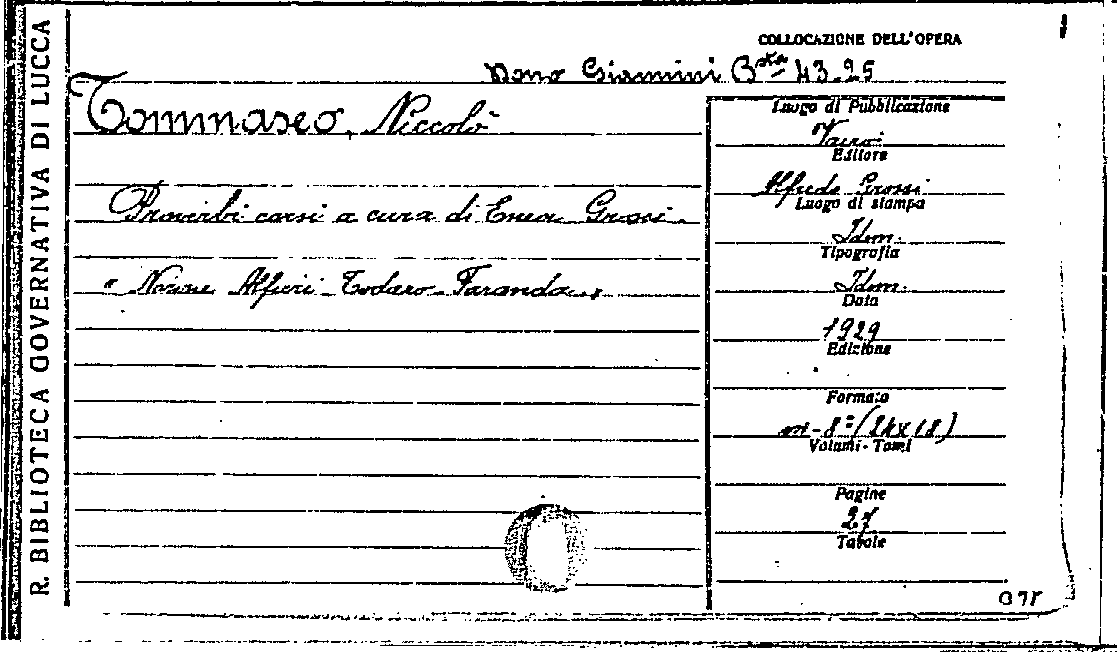 R. BIBLIOTECA GOVERNATIVA DI LUCCA
COLLOCAZIONE DELL'OPERA
Dono Giannini Bsta 43.25
Tommaseo, Niccolò
Proverbi corsi a cura di Enea Grossi.
" Nozze Alfieri-Todaro-Faranda "
Luogo di Pubblicazione
Editore
Alfredo Grossi
Luogo di stampa
Idem.
Tipografia
Idem.
Data
1929
Edizione
Formato
in-8º (24x18)
Volumi-Tomi
Pagine
27
Tavole